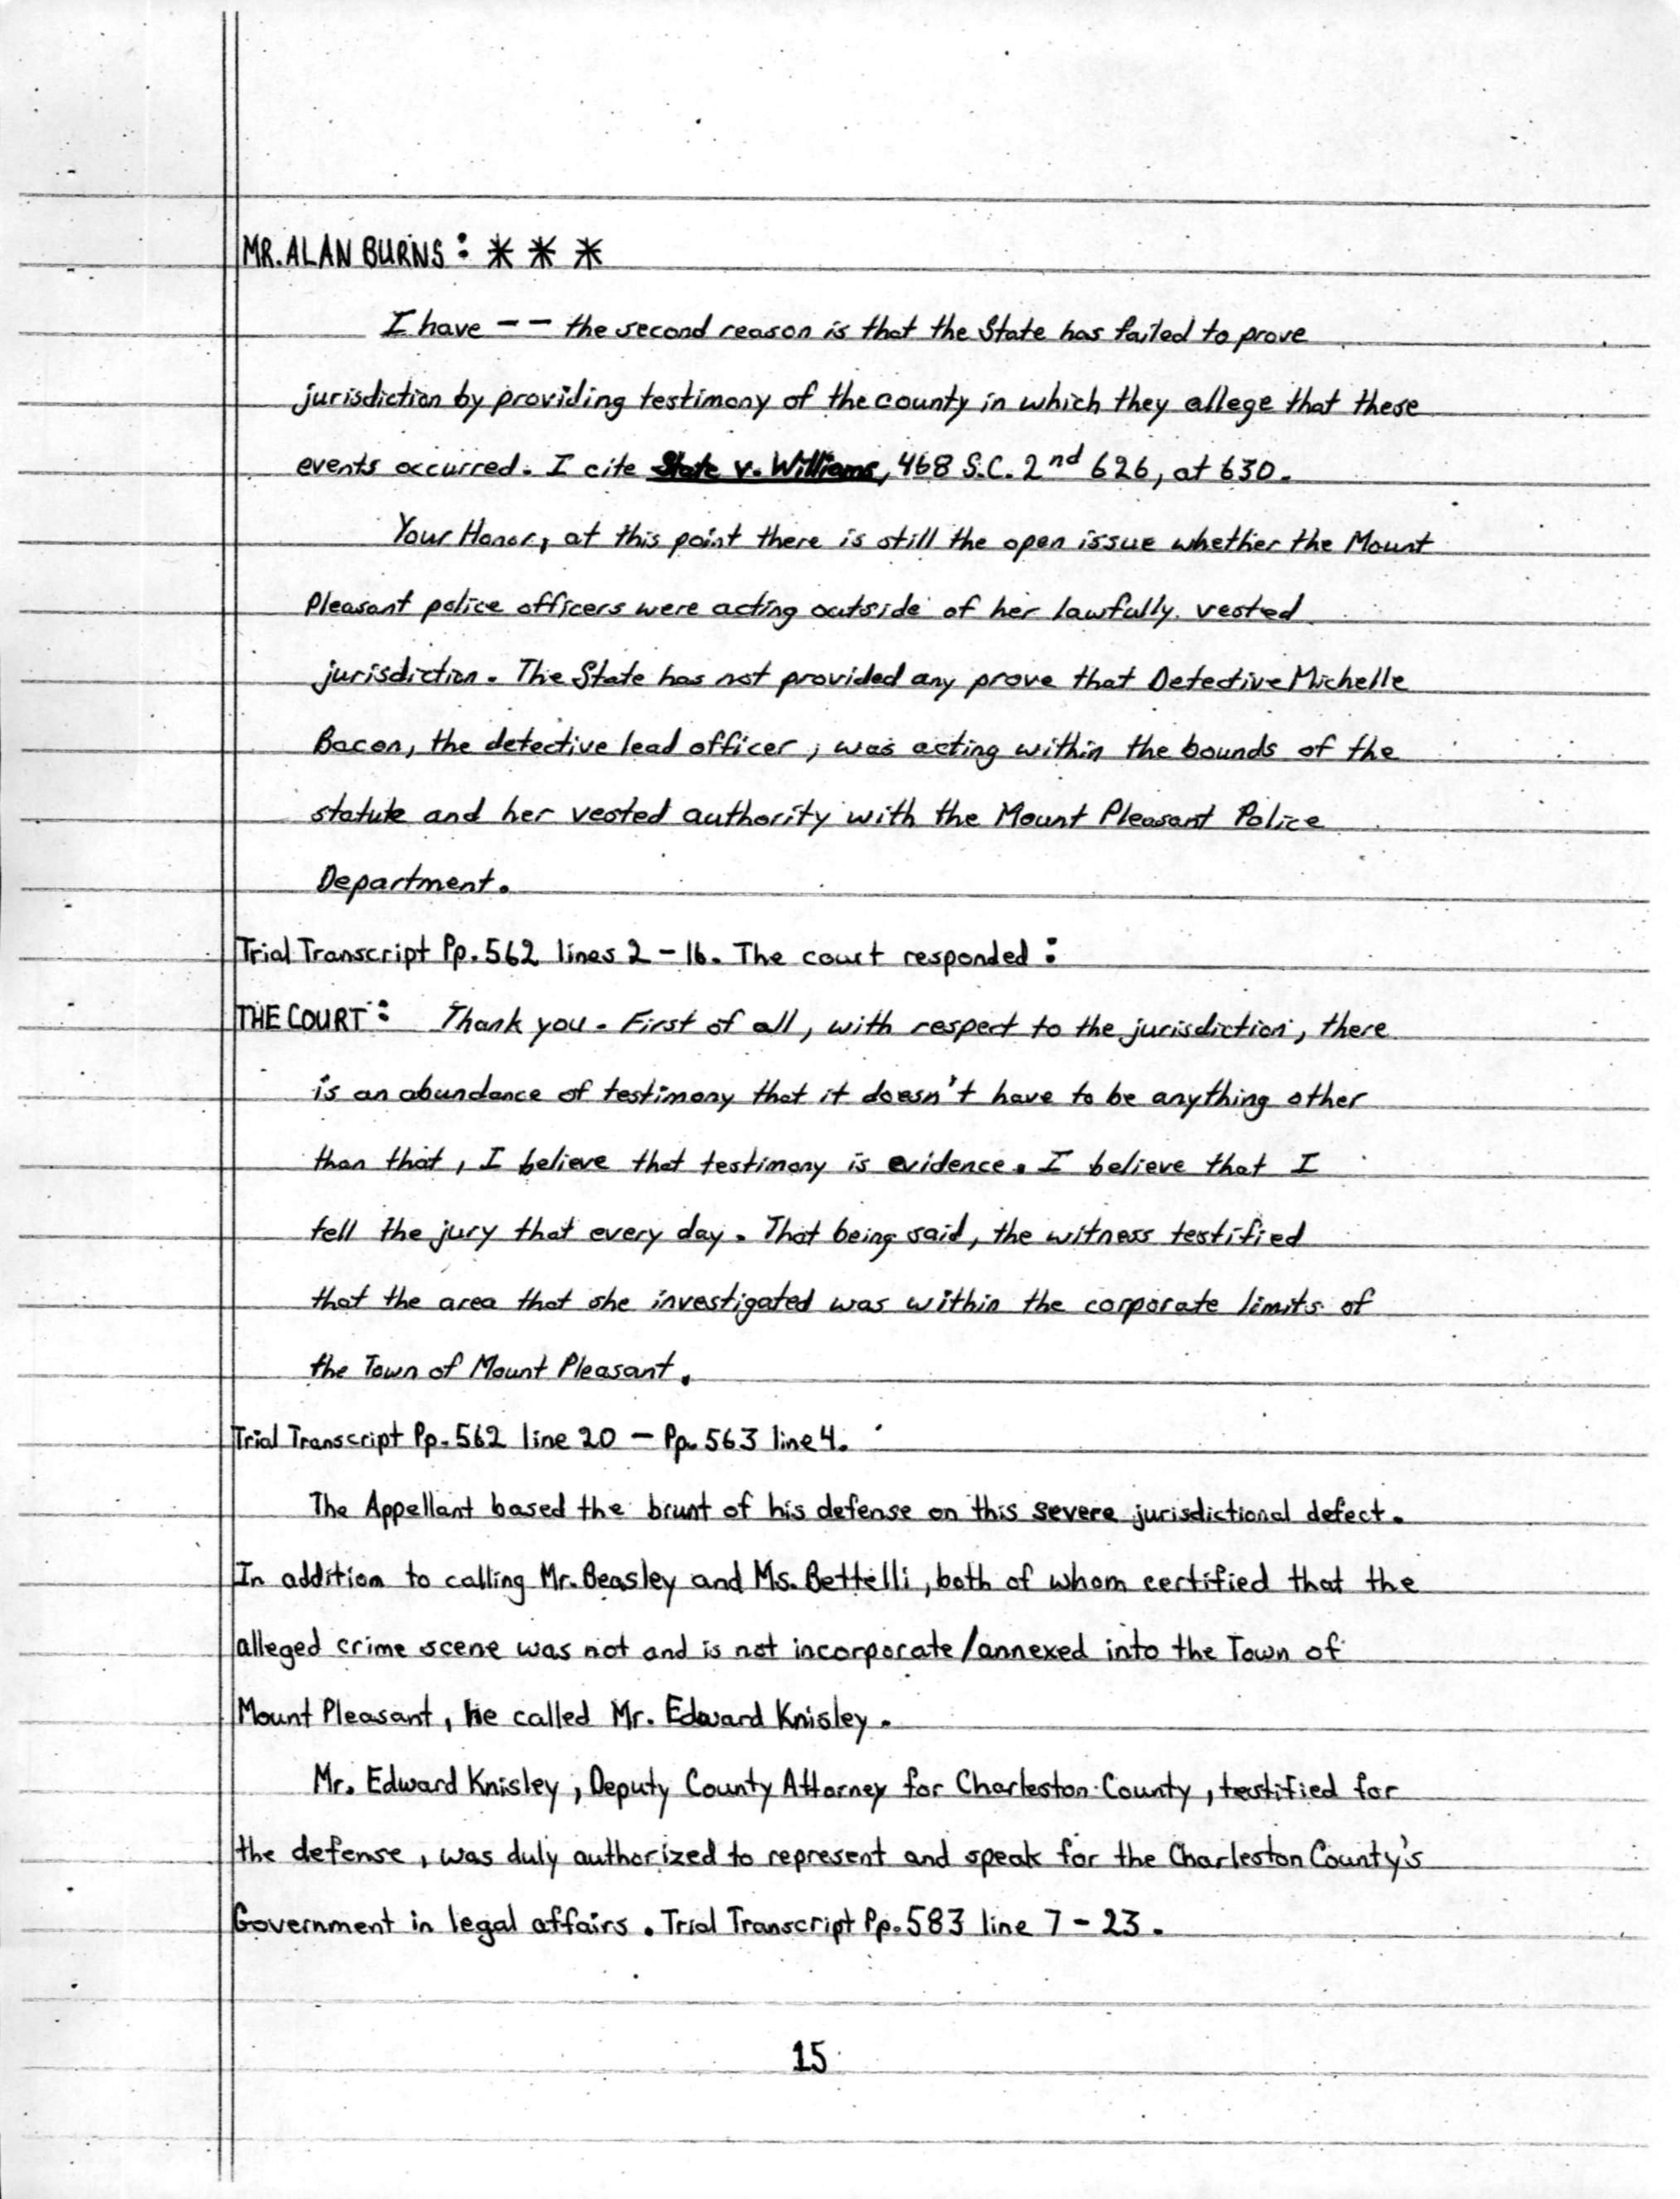 MR. ALAN BURNS: * * *
I have -- the second reason is that the State has failed to prove
jurisdiction by providing testimony of the county in which they allege that these
events occurred. I cite State v. Williams, 468 S.C. 2nd 626, at 630.
Your Honor, at this point there is still the open issue whether the Mount
Pleasant police officers were acting outside of her lawfully vested
jurisdiction. The State has not provided any prove that Detective Michelle
Bacon, the detective lead officer, was acting within the bounds of the
statute and her vested authority with the Mount Pleasant Police
Department.
Trial Transcript Pp. 562 lines 2-16. The court responded:
THE COURT: Thank you. First of all, with respect to the jurisdiction, there
is an abundance of testimony that it doesn't have to be anything other
than that, I believe that testimony is evidence. I believe that I
tell the jury that every day. That being said, the witness testified
that the area that she investigated was within the corporate limits of
the Town of Mount Pleasant.
Trial Transcript Pp. 562 line 20 - Pp. 563 line 4.
The Appellant based the brunt of his defense on this severe jurisdictional defect.
In addition to calling Mr. Beasley and Ms. Bettelli, both of whom certified that the
alleged crime scene was not and is not incorporate/annexed into the Town of
Mount Pleasant, he called Mr. Edward Knisley.
Mr. Edward Knisley, Deputy County Attorney for Charleston County, testified for
the defense, was duly authorized to represent and speak for the Charleston County's
Government in legal affairs. Trial Transcript Pp. 583 line 7-23.
15